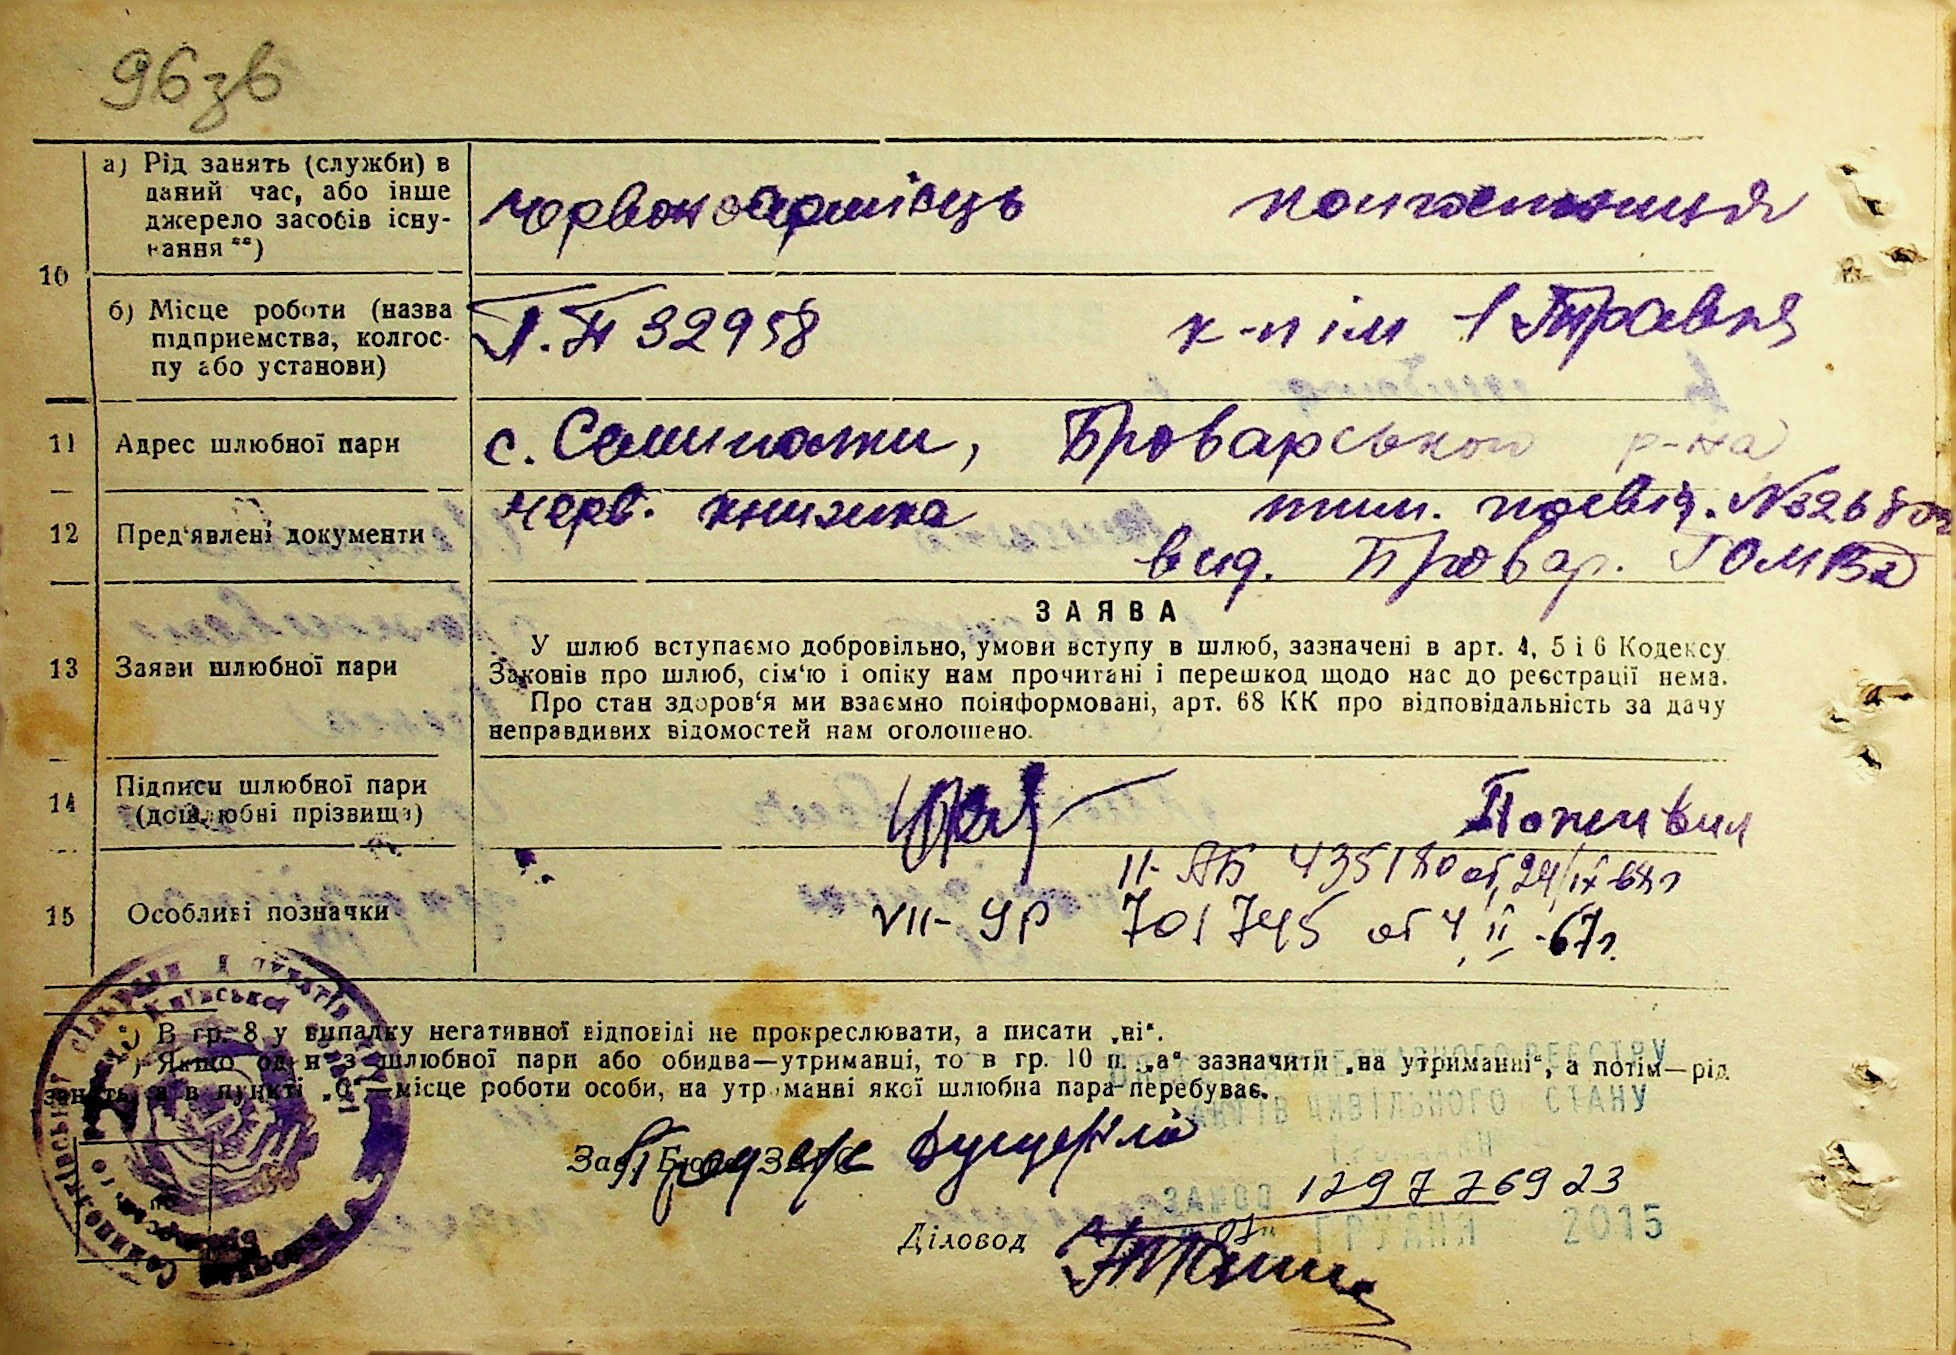 96зв
10
а) Рід занять (служби) в
даний час, або інше
джерело засобів існу-
вання **)
червоноармієць колгоспниця
б) Місце роботи (назва
підприємства, колгос-
пу або установи)
П.П 32958 к-п ім 1 Травня
11 Адрес шлюбної пари с. Семиполки, Броварського р-на
12 Пред'явлені документи черв. книжка тим. посвід. №
вид. Бровар.
ЗАЯВА
13 Заяви шлюбної пари
У шлюб вступаємо добровільно, умови вступу в шлюб, зазначені в арт. 4, 5 і 6 Кодексу
Законів про шлюб, сім'ю і опіку нам прочитані і перешкод щодо нас до реєстрації нема.
Про стан здоров'я ми взаємно поінформовані, арт. 68 КК про відповідальність за дачу
неправдивих відомостей нам оголошено.
14 Підписи шлюбної пари
(дошлюбні прізвища)
15 Особливі позначки
II-АБ 435180 от 24/IX-68г
VII-УР 701745 от 4 II-67г.
*) В гр. 8 у випадку негативної відповіді не прокреслювати, а писати „ні".
**) Якщо один з шлюбної пари або обидва—утриманці, то в гр. 10 п. „а" зазначити „на утриманні", а потім—рід
занять, а в пункті „б"—місце роботи особи, на утриманні якої шлюбна пара перебуває.
ДЕРЖАВНОГО РЕЄСТРУ
АКТІВ ЦИВІЛЬНОГО СТАНУ
ГРОМАДЯН
Зав. Бюро ЗАГС
ЗА №00 129776923
Діловод ГРУДНЯ 2015